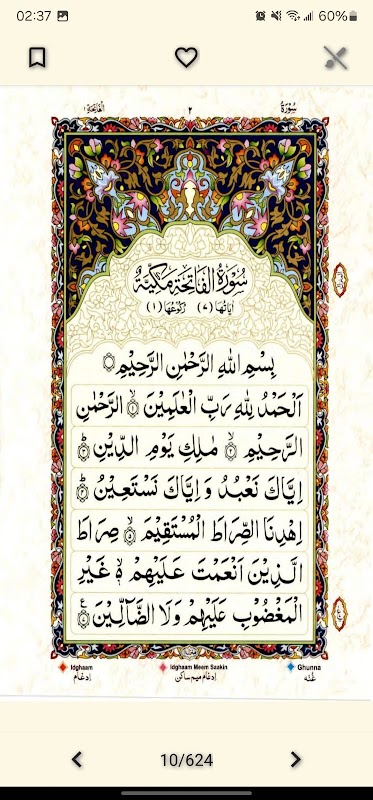 02:37
60%
سُورَةُ ٢ الفَاتِحَة ١
سُورَةُ الْفَاتِحَةِ مَكِّيَّةٌ
اٰيَاتُهَا (٧) رُكُوْعُهَا (١)
بِسْمِ اللهِ الرَّحْمٰنِ الرَّحِيْمِ
اَلْحَمْدُ لِلّٰهِ رَبِّ الْعٰلَمِيْنَ ١ الرَّحْمٰنِ
الرَّحِيْمِ ٢ مٰلِكِ يَوْمِ الدِّيْنِ ٣
اِيَّاكَ نَعْبُدُ وَ اِيَّاكَ نَسْتَعِيْنُ ٤
اِهْدِنَا الصِّرَاطَ الْمُسْتَقِيْمَ ٥ صِرَاطَ
الَّذِيْنَ اَنْعَمْتَ عَلَيْهِمْ ٦ غَيْرِ
الْمَغْضُوْبِ عَلَيْهِمْ وَلَا الضَّآلِّيْنَ ٧
Idghaam Idghaam Meem Saakin Ghunna
اِدغَام اِدغَام میم ساکن غُنّه
10/624